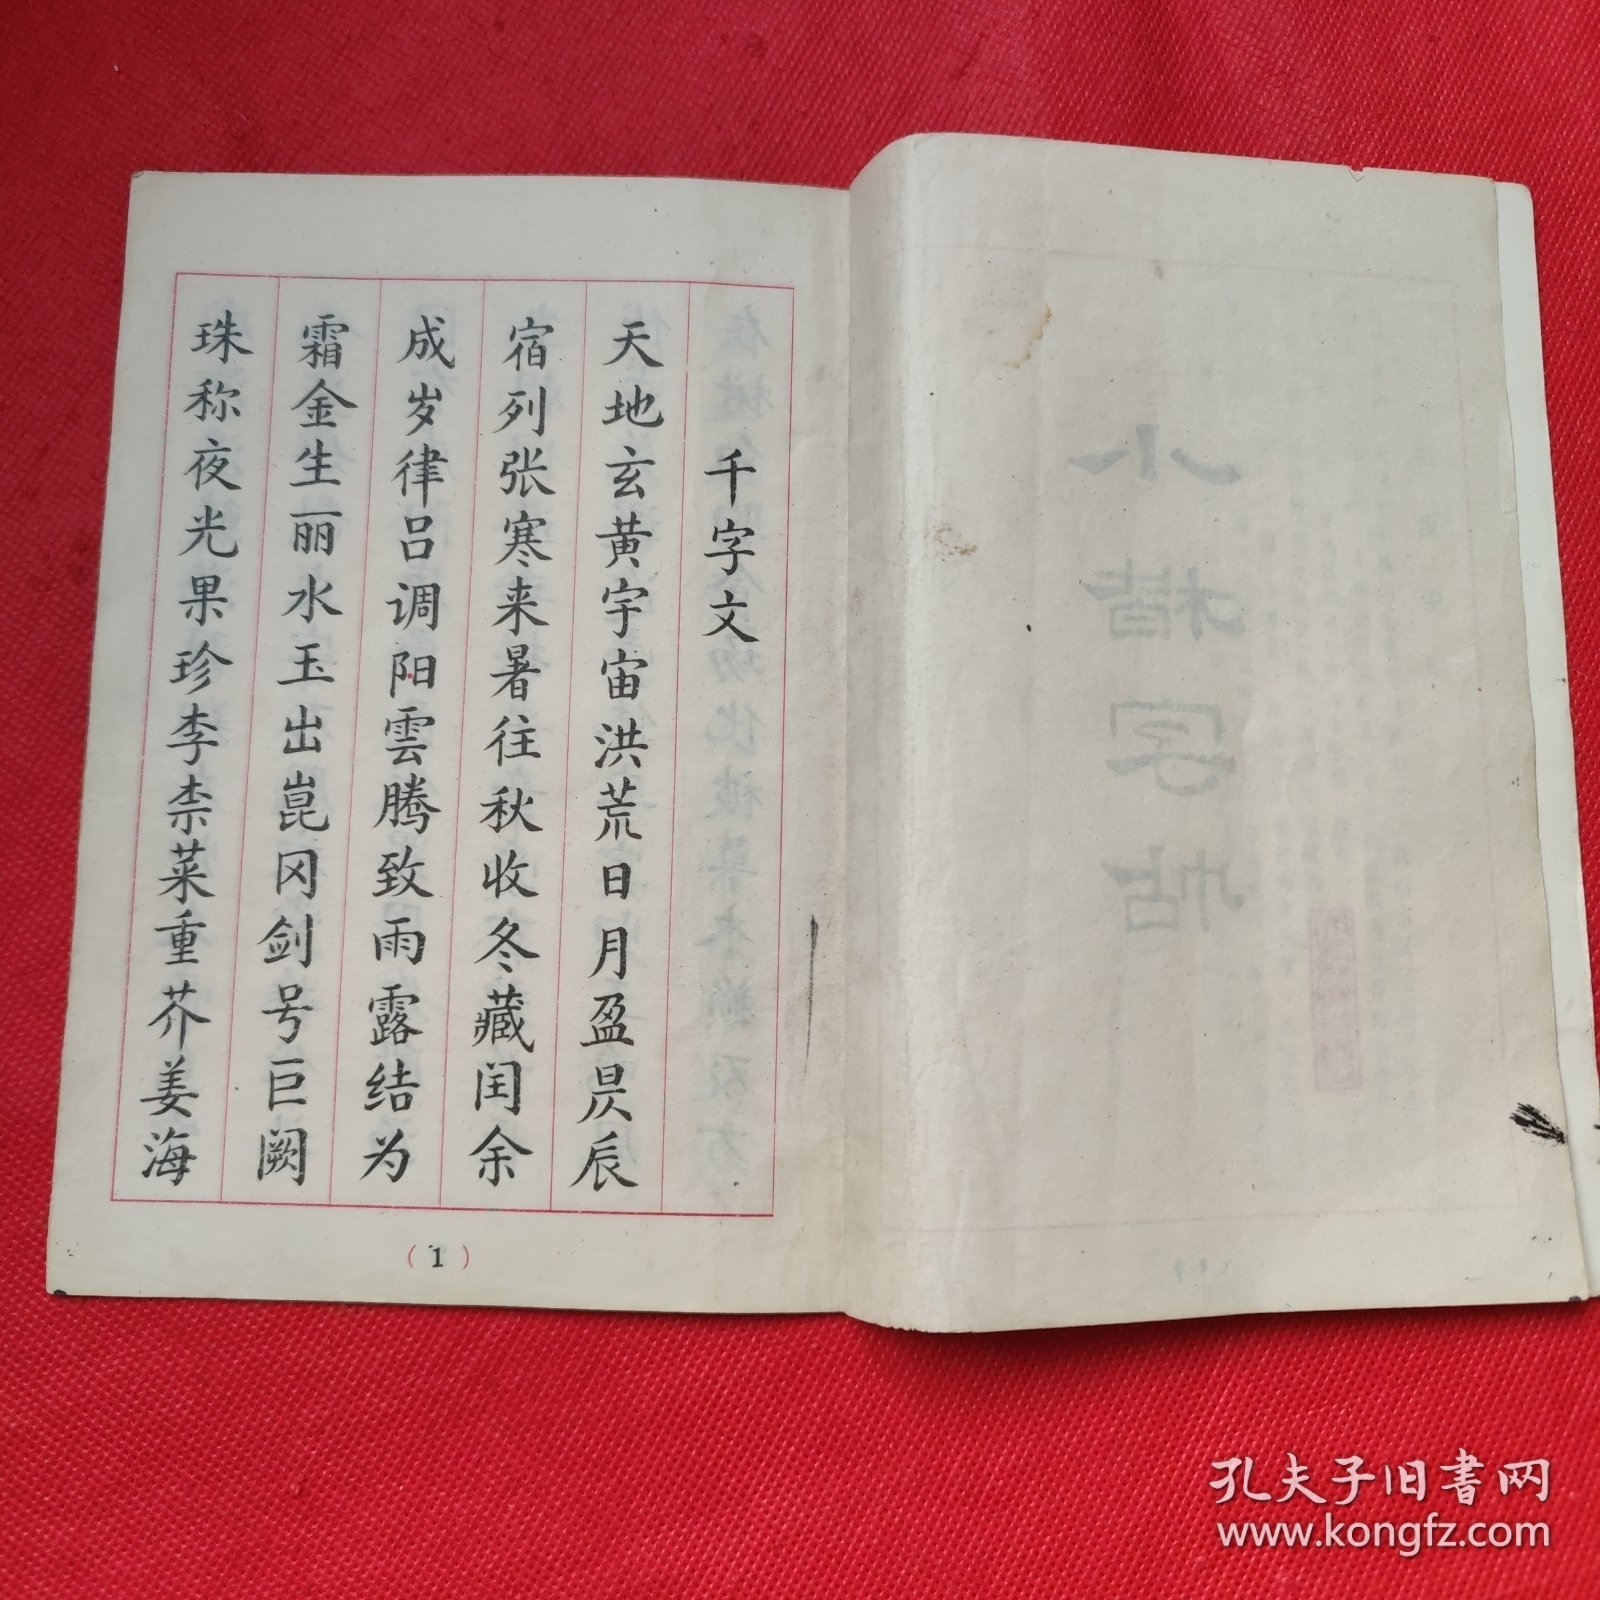 千字文
天地玄黄宇宙洪荒日月盈昃辰
宿列张寒来暑往秋收冬藏闰余
成岁律吕调阳雲腾致雨露结为
霜金生丽水玉出崑冈剑号巨阙
珠称夜光果珍李柰菜重芥姜海
(1)
小楷字帖
孔夫子旧书网
www.kongfz.com